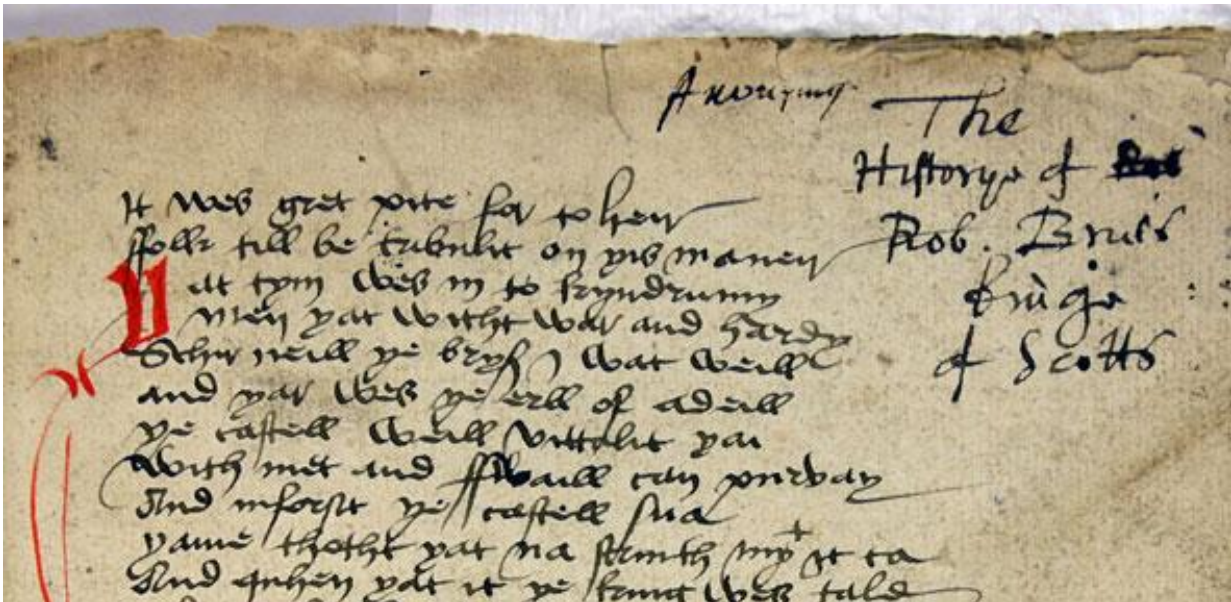 Anonymus
The
Historye of
Rob. Bruis
Kinge
of Scotts
It wes gret pite for to heir
ffolk till be trubulit on yis maneir
yat tym wes in to kyndrumy
men yat witht war and hardy
Schir neill ye bryß I wat weill
and yar wes ye erll of adeill
ye castell weill vittalit yai
With met and ffwaill can purvay
And inforsit ye castell sua
yame thotht yat na strinth myt it ta
And quhen yat it ye king wes tald